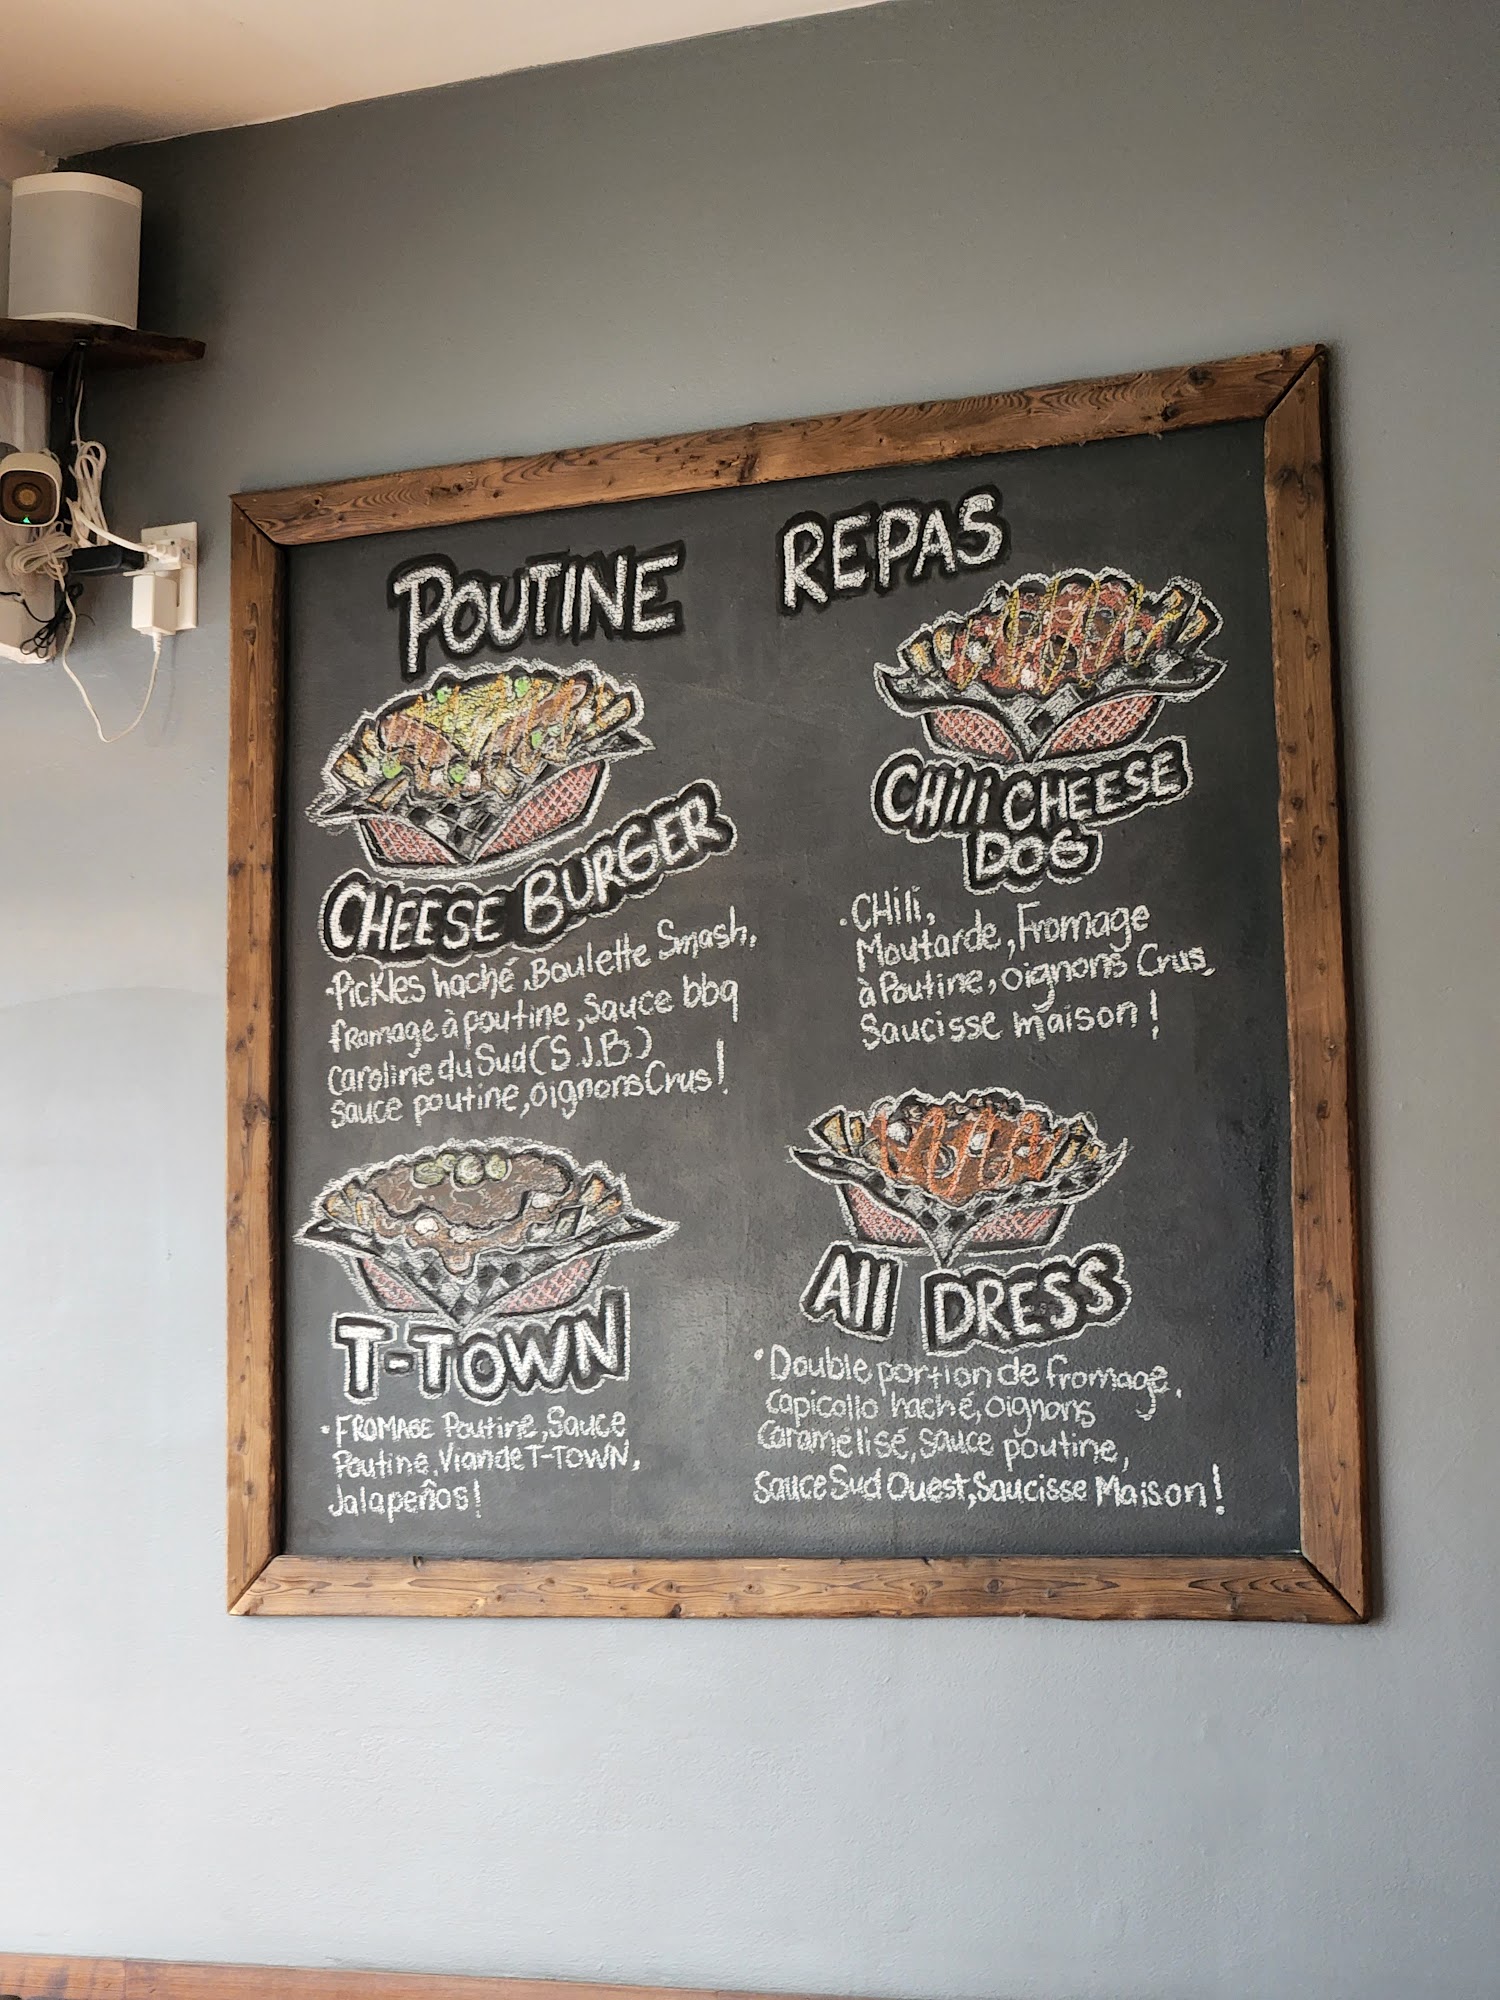 POUTINE REPAS
CHEESE BURGER
·Pickles haché, Boulette Smash,
fromage à poutine, Sauce bbq
Caroline du Sud (S.J.B.)
sauce poutine, oignons Crus!
CHIli CHEESE
DOG
·CHili,
Moutarde, Fromage
à Poutine, oignons Crus,
Saucisse maison!
T-TOWN
·FROMAGE Poutine, Sauce
Poutine, Viande T-TOWN,
Jalapeños!
All DRESS
·Double portion de fromage,
Capicollo haché, oignons
Caramélisé, sauce poutine,
Sauce Sud Ouest, Saucisse Maison!